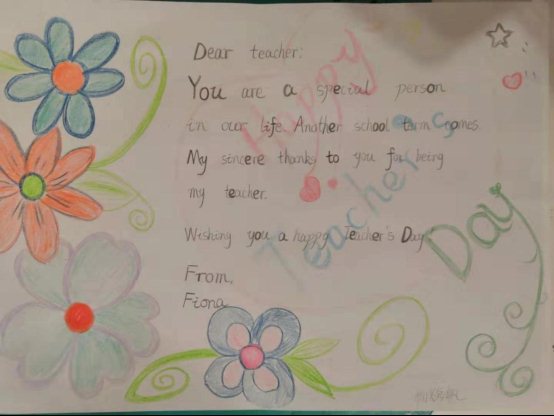 Dear teacher:
You are a special person
in our life. Another school term comes.
My sincere thanks to you for being
my teacher.
Wishing you a happy Teacher's Day
From,
Fiona
Happy
Teacher's
Day